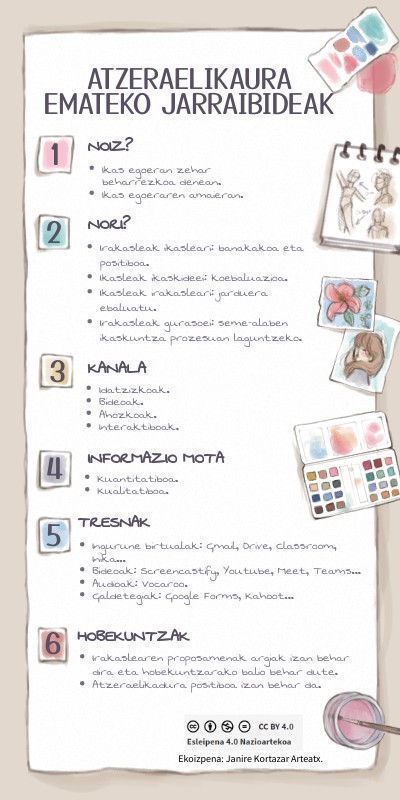 ATZERAELIKAURA
EMATEKO JARRAIBIDEAK
1 NOIZ?
• Ikas egoeran zehar
beharrezkoa denean.
• Ikas egoeraren amaieran.
2 NORI?
• Irakasleak ikasleari: banakakoa eta
positiboa.
• Ikasleak ikaskideei: koebaluazioa.
• Ikasleak irakasleari: jarduera
ebaluatu.
• Irakasleak gurasoei: seme-alaben
ikaskuntza prozesuan laguntzeko.
3 KANALA
• Idatzizkoak.
• Bideoak.
• Ahozkoak.
• Interaktiboak.
4 INFORMAZIO MOTA
• Kuantitatiboa.
• Kualitatiboa.
5 TRESNAK
• Ingurune birtualak: Gmail, Drive, Classroom,
Inika...
• Bideoak: Screencastify, Youtube, Meet, Teams...
• Audioak: Vocaroo.
• Galdetegiak: Google Forms, Kahoot...
6 HOBEKUNTZAK
• Irakaslearen proposamenak argiak izan behar
dira eta hobekuntzarako balio behar dute.
• Atzeraelikadura positiboa izan behar da.
CC BY 4.0
Esleipena 4.0 Nazioartekoa
Ekoizpena: Janire Kortazar Arteatx.